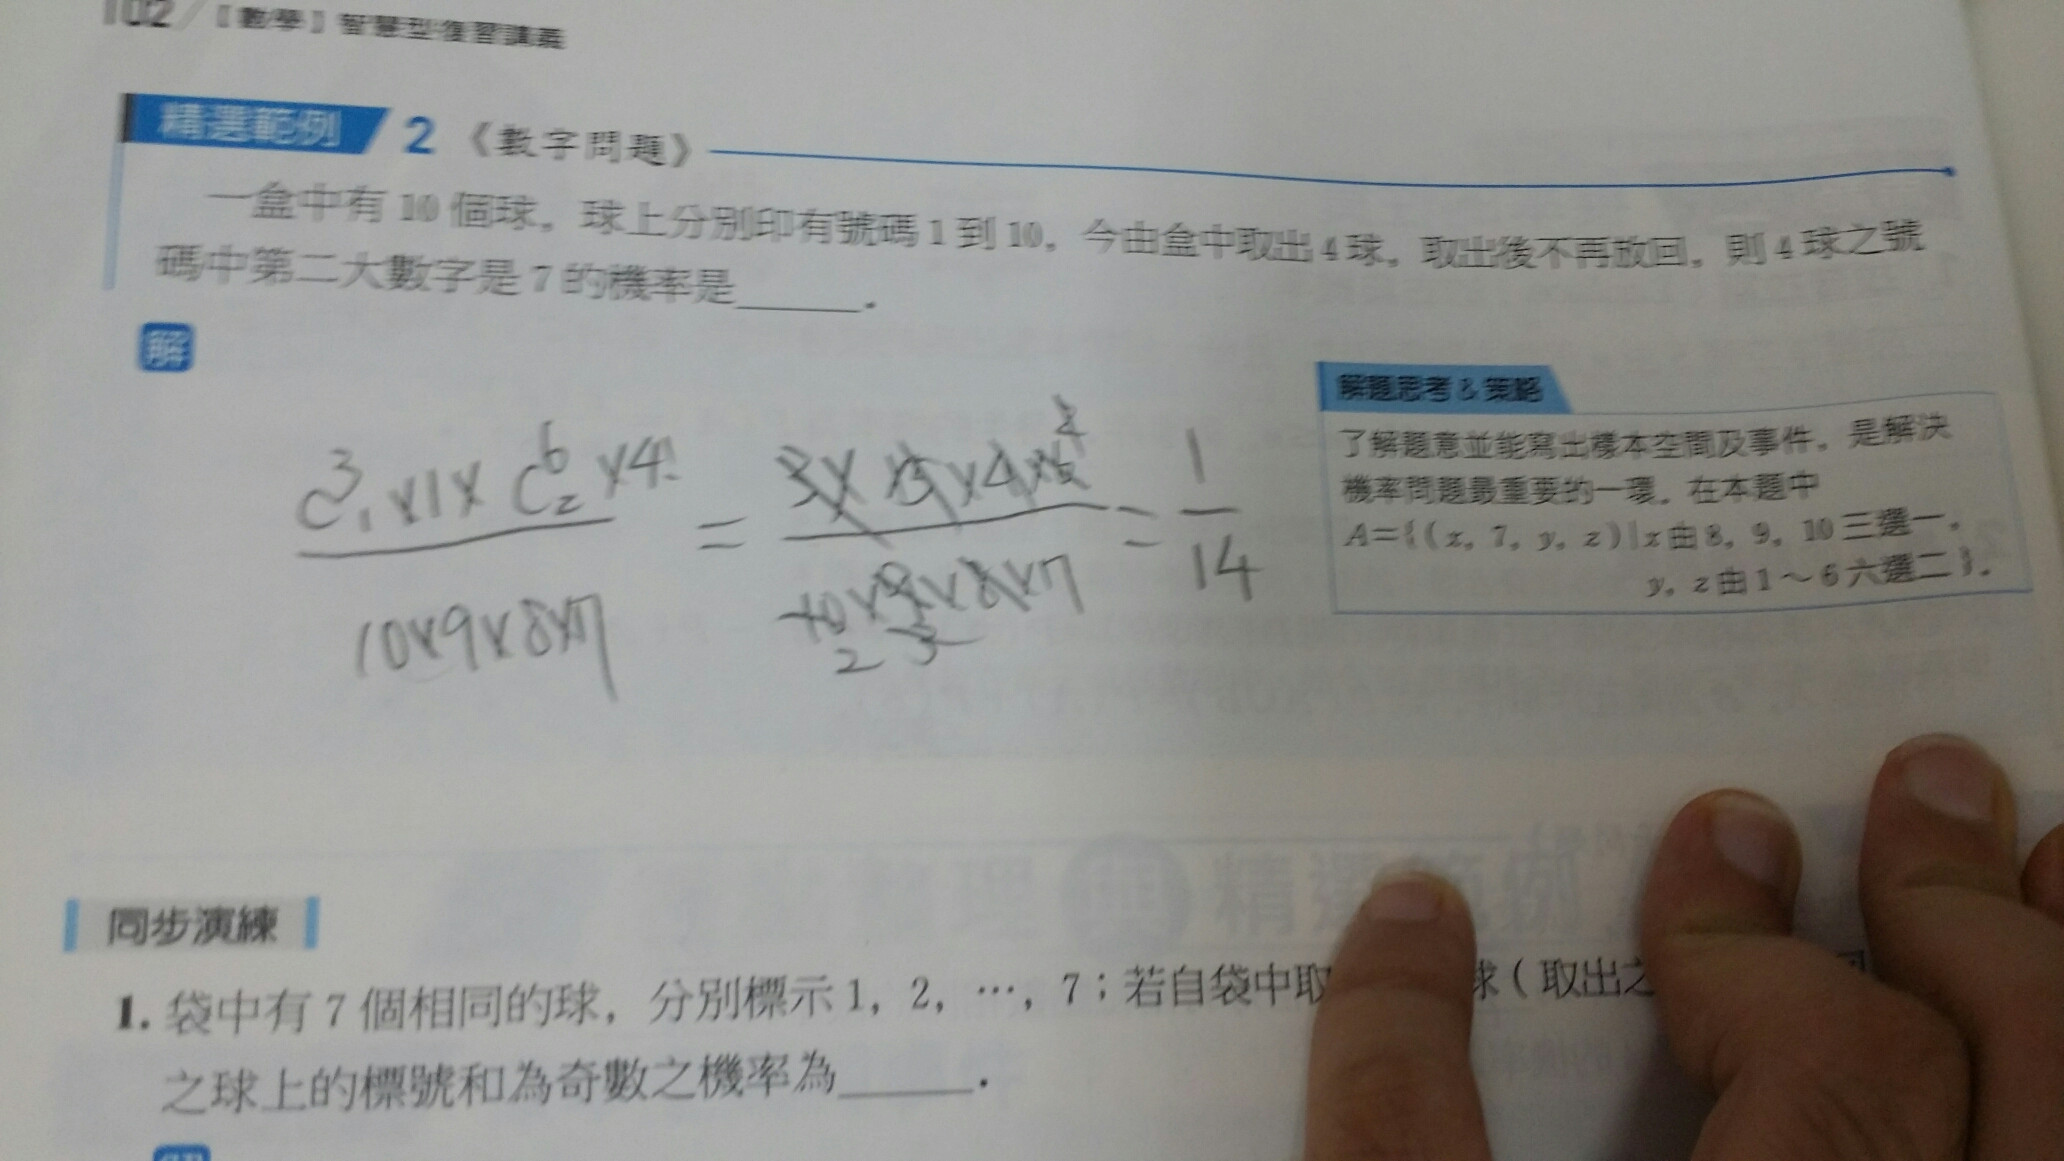 102/【數學】智慧型復習講義
精選範例 2 《數字問題》
一盒中有 10 個球，球上分別印有號碼 1 到 10，今由盒中取出 4 球，取出後不再放回，則 4 球之號
碼中第二大數字是 7 的機率是______．
解
解題思考&策略
了解題意並能寫出樣本空間及事件，是解決
機率問題最重要的一環，在本題中
A={(x, 7, y, z)|x由8, 9, 10三選一，
y, z由1～6六選二}．
C³₁×1×C⁶₂×4!
10×9×8×7
=
10×9×8×7
2 3
= 1/14
同步演練
1. 袋中有 7 個相同的球，分別標示 1, 2, …, 7；若自袋中取 球（取出之
之球上的標號和為奇數之機率為______．